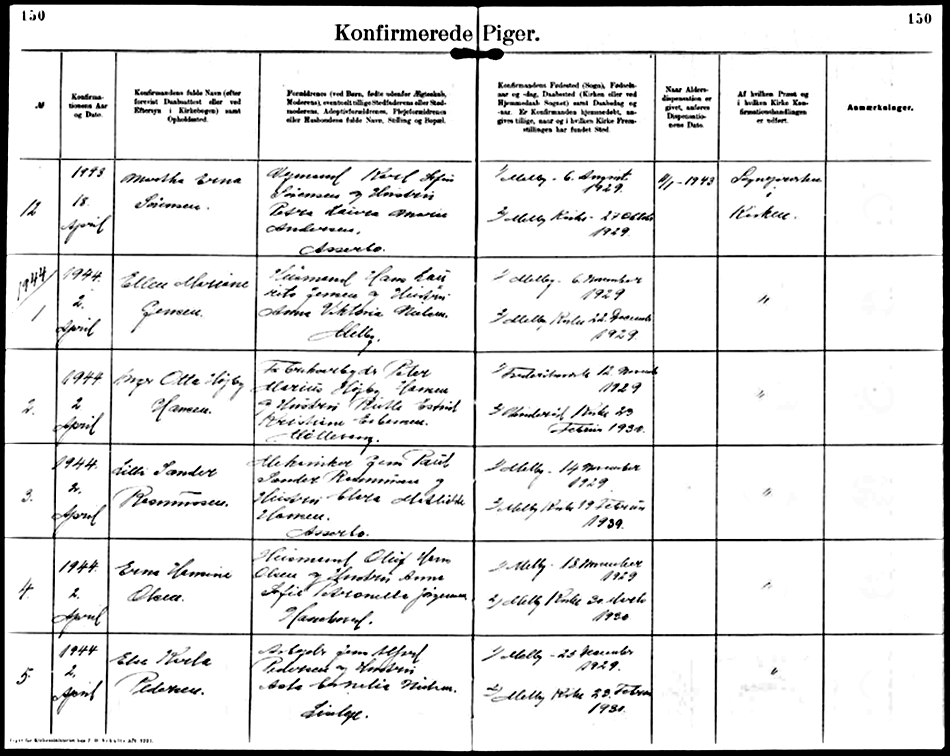 150
150
Konfirmerede Piger.
№
Konfirma-
tionens Aar
og Dato.
Konfirmandens fulde Navn (efter
forevist Daabsattest eller ved
Eftersyn i Kirkebogen) samt
Opholdssted.
Forældrenes (ved Børn, fødte udenfor Ægteskab,
Moderens), eventuelt tillige Stedfaderens eller Sted-
moderens, Adoptivforældrenes, Plejeforældrenes
eller Husbondens fulde Navn, Stilling og Bopæl.
Konfirmandens Fødested (Sogn), Fødsels-
aar og -dag, Daabssted (Kirken eller ved
Hjemmedaab Sognet) samt Daabsdag og
-aar. Er Konfirmanden hjemmedøbt, an-
gives tillige, naar og i hvilken Kirke Frem-
stillingen har fundet Sted.
Naar Alders-
dispensation er
givet, anføres
Dispensatio-
nens Dato.
Af hvilken Præst og
i hvilken Kirke Kon-
firmationshandlingen
er udført.
Anmærkninger.
12
1943
18.
April
Martha Erna
Sørensen.
Karl
Sørensen og Hustru
Petra Laura Marie
Andersen.
Asserbo.
1/ Melby - 6. August
1929.
2/ Melby Kirke - 27 Oktober
1929
- 1943
Sognepræsten
i
Kirken.
1944
1
1944.
2.
April
Ellen Mariane
Jensen.
Husmand Hans Lau
rits Jensen og Hustru
Anna Viktoria Nielsen.
Melby.
1/ Melby - 6 November
1929
2/ Melby Kirke 22. December
1929.
"
2.
1944
2
April
Inger Otta Højby
Hansen.
Peter
Marius Højby Hansen
og Hustru Estrid
Kristiane Esbensen.
1/ 12 November
1929
2/ Kirke 23
Februar 1930.
"
3.
1944.
2.
April
Lilli Sander
Rasmussen.
Mekaniker Jens Paul
Sander Rasmussen og
Hustru Clara Mathilde
Hansen.
Asserbo.
1/ Melby - 14 November
1929.
2/ Melby Kirke 19 Februar
1930.
"
4.
1944.
2.
April
Erna Hansine
Olsen.
Husmand Oluf Hans
Olsen og Hustru Anna
Sofie Petronella Jørgensen
1/ Melby - 18 November
1929
2/ Melby Kirke 30 Marts
1930
"
5
1944
2.
April
Else Karla
Pedersen.
Arbejder Jens Alfred
Pedersen og Hustru
Asta Cornelia Nielsen.
1/ Melby - 23 December
1929.
2/ Melby Kirke 23. Februar
1930.
"